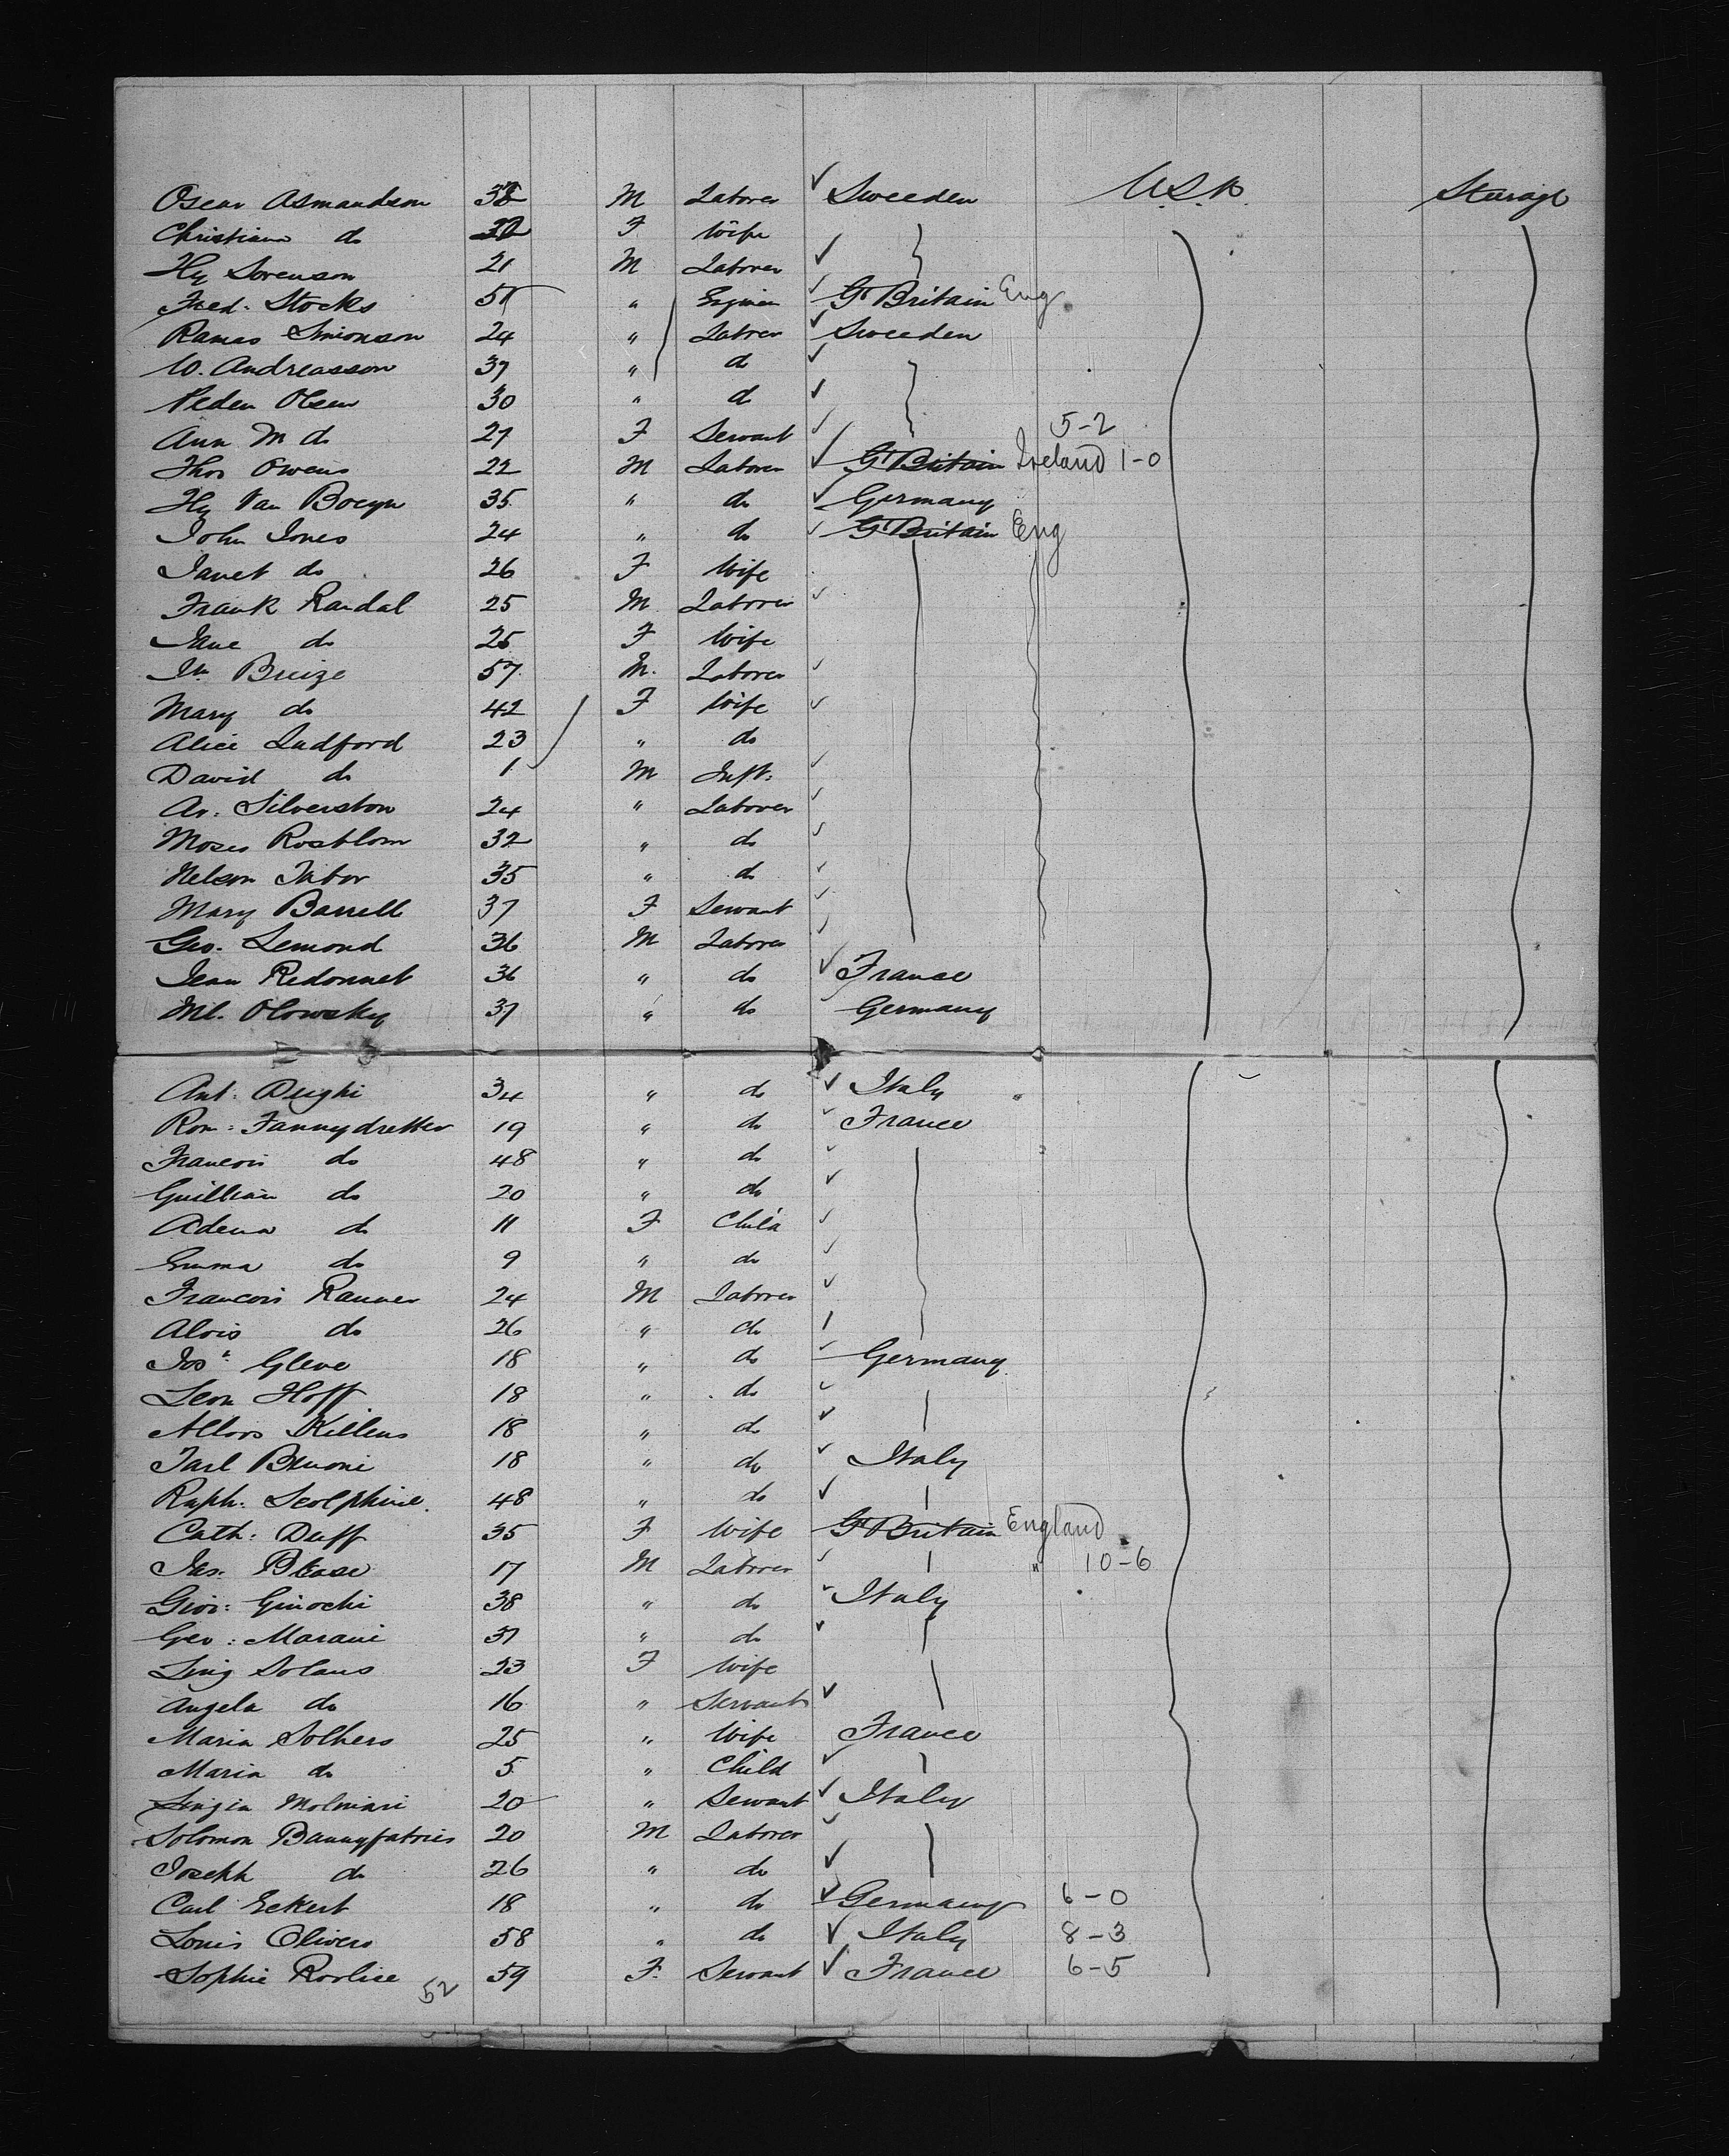 Oscar Asmandson 38 M Laborer Sweeden U.S.A. Steerage
Christiana do 32 F Wife
Hy Sorenson 21 M Laborer
Fred. Stocks 51 " Engineer Gt Britain Eng
Ramas Simonson 24 " Laborer Sweeden
W. Andreasson 37 " do
Peden Olsen 30 " do
Ann M do 27 F Servant 5-2
Thos Owens 22 M Laborer Gt Britain Ireland 1-0
Hy Van Bocyn 35 " do Germany
John Jones 24 " do Gt Britain Eng
Janet do 26 F Wife
Frank Randal 25 M Laborer
Jane do 25 F Wife
Breize 57 M. Laborer
Mary do 42 F Wife
Alice Ludford 23 " do
David do 1 M Inft.
Av. Silverston 24 " Laborer
Moses Rosblom 32 " do
Nelson Tabor 35 " do
Mary Barrell 37 F Servant
Geo. Lemond 36 M Laborer
Jean Redonnet 36 " do France
Ml. Olowsky 37 " do Germany
Ant. Dughi 34 " do Italy
Rom: Fannydretter 19 " do France
Francois do 48 " do
Guilliam do 20 " do
Adena do 11 F Child
Emma do 9 " do
Francois Ranner 24 M Laborer
Alois do 26 " do
Josh Gleve 18 " do Germany
Leon Hoff 18 " do
Allois Killens 18 " do
Tarl Bruoni 18 " do Italy
Raph. Scolphine. 48 " do
Cath: Duff 35 F Wife Gt Britain England
Jas. Blease 17 M Laborer " 10-6
Giov: Ginochi 38 " do Italy
Geo: Marani 37 " do
Ling Solaus 23 F Wife
Angela do 16 " Servant
Maria Solhers 25 " Wife France
Maria do 5 " Child
Molniari 20 " Servant Italy
Solomon Bannyfatries 20 M Laborer
Joseph do 26 " do
Carl Eckert 18 " do Germany 6-0
Louis Olivero 58 " do Italy 8-3
Sophie Rorlice 59 F. Servant France 6-5
52